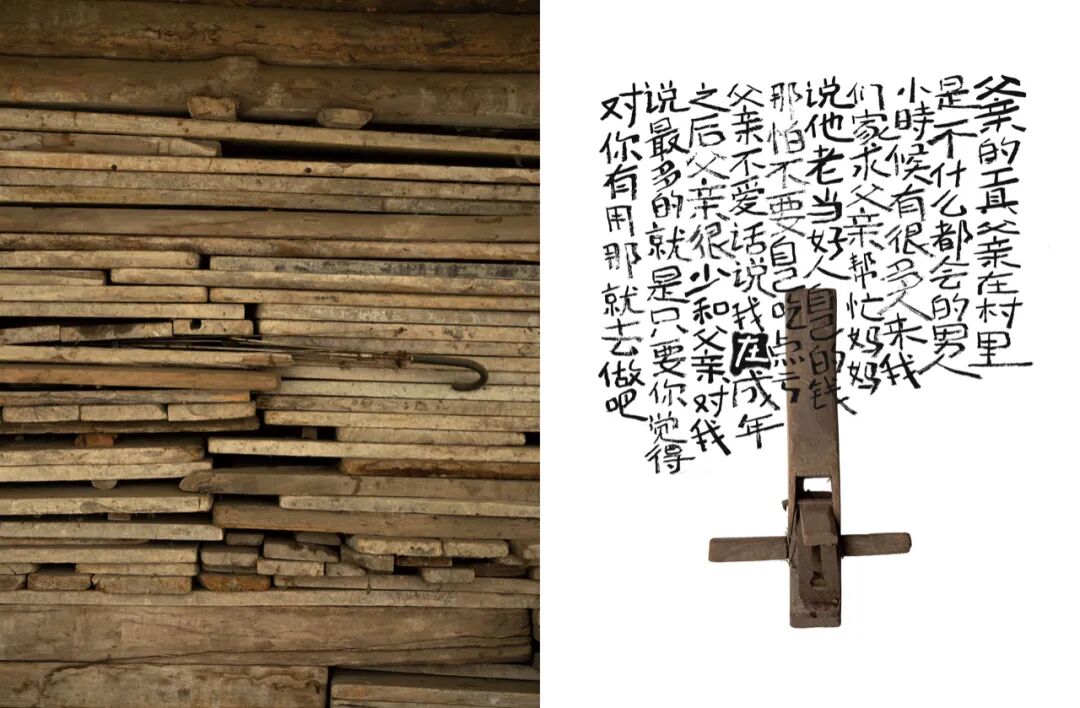 父亲的工具父亲在村里
是不什么都会的男人
小時候有很多人来我
们家求父亲帮忙妈妈
说他老当好人自己的钱
那怕不要自己吃点亏
父亲不爱话说我在成年
之后父亲很少和父亲对我
说最多的就是只要你觉得
对你有用那就去做吧